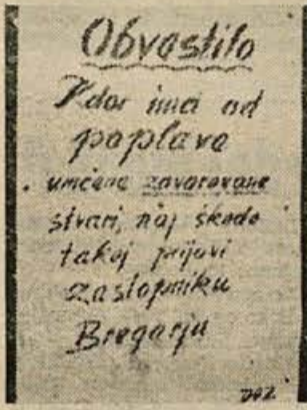 Obvestilo
Kdor ima od
poplave
uničene zavarovane
stvari, naj škodo
takoj prijavi
zastopniku
Bregarju